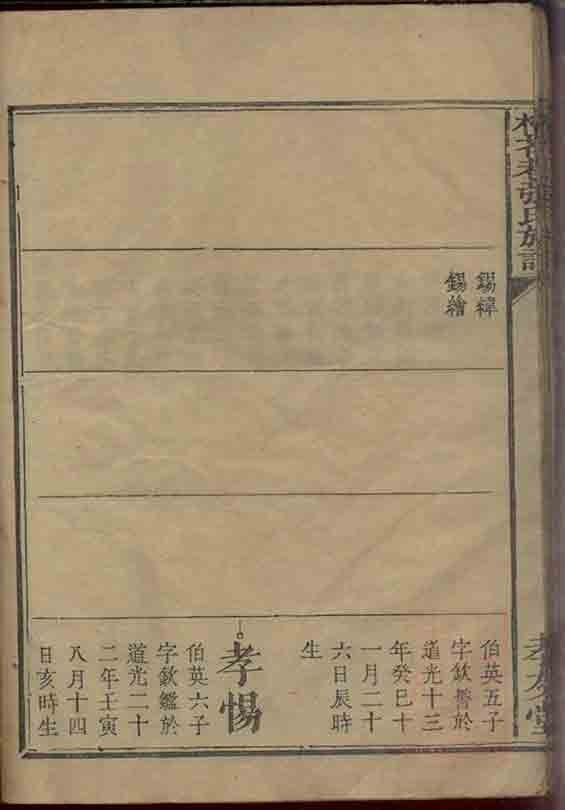 張氏族譜
孝友堂
錫緯
錫繪
伯英五子
字欽於
道光十三
年癸巳十
一月二十
六日辰時
生
孝惕
伯英六子
字欽鑑於
道光二十
二年壬寅
八月十四
日亥時生